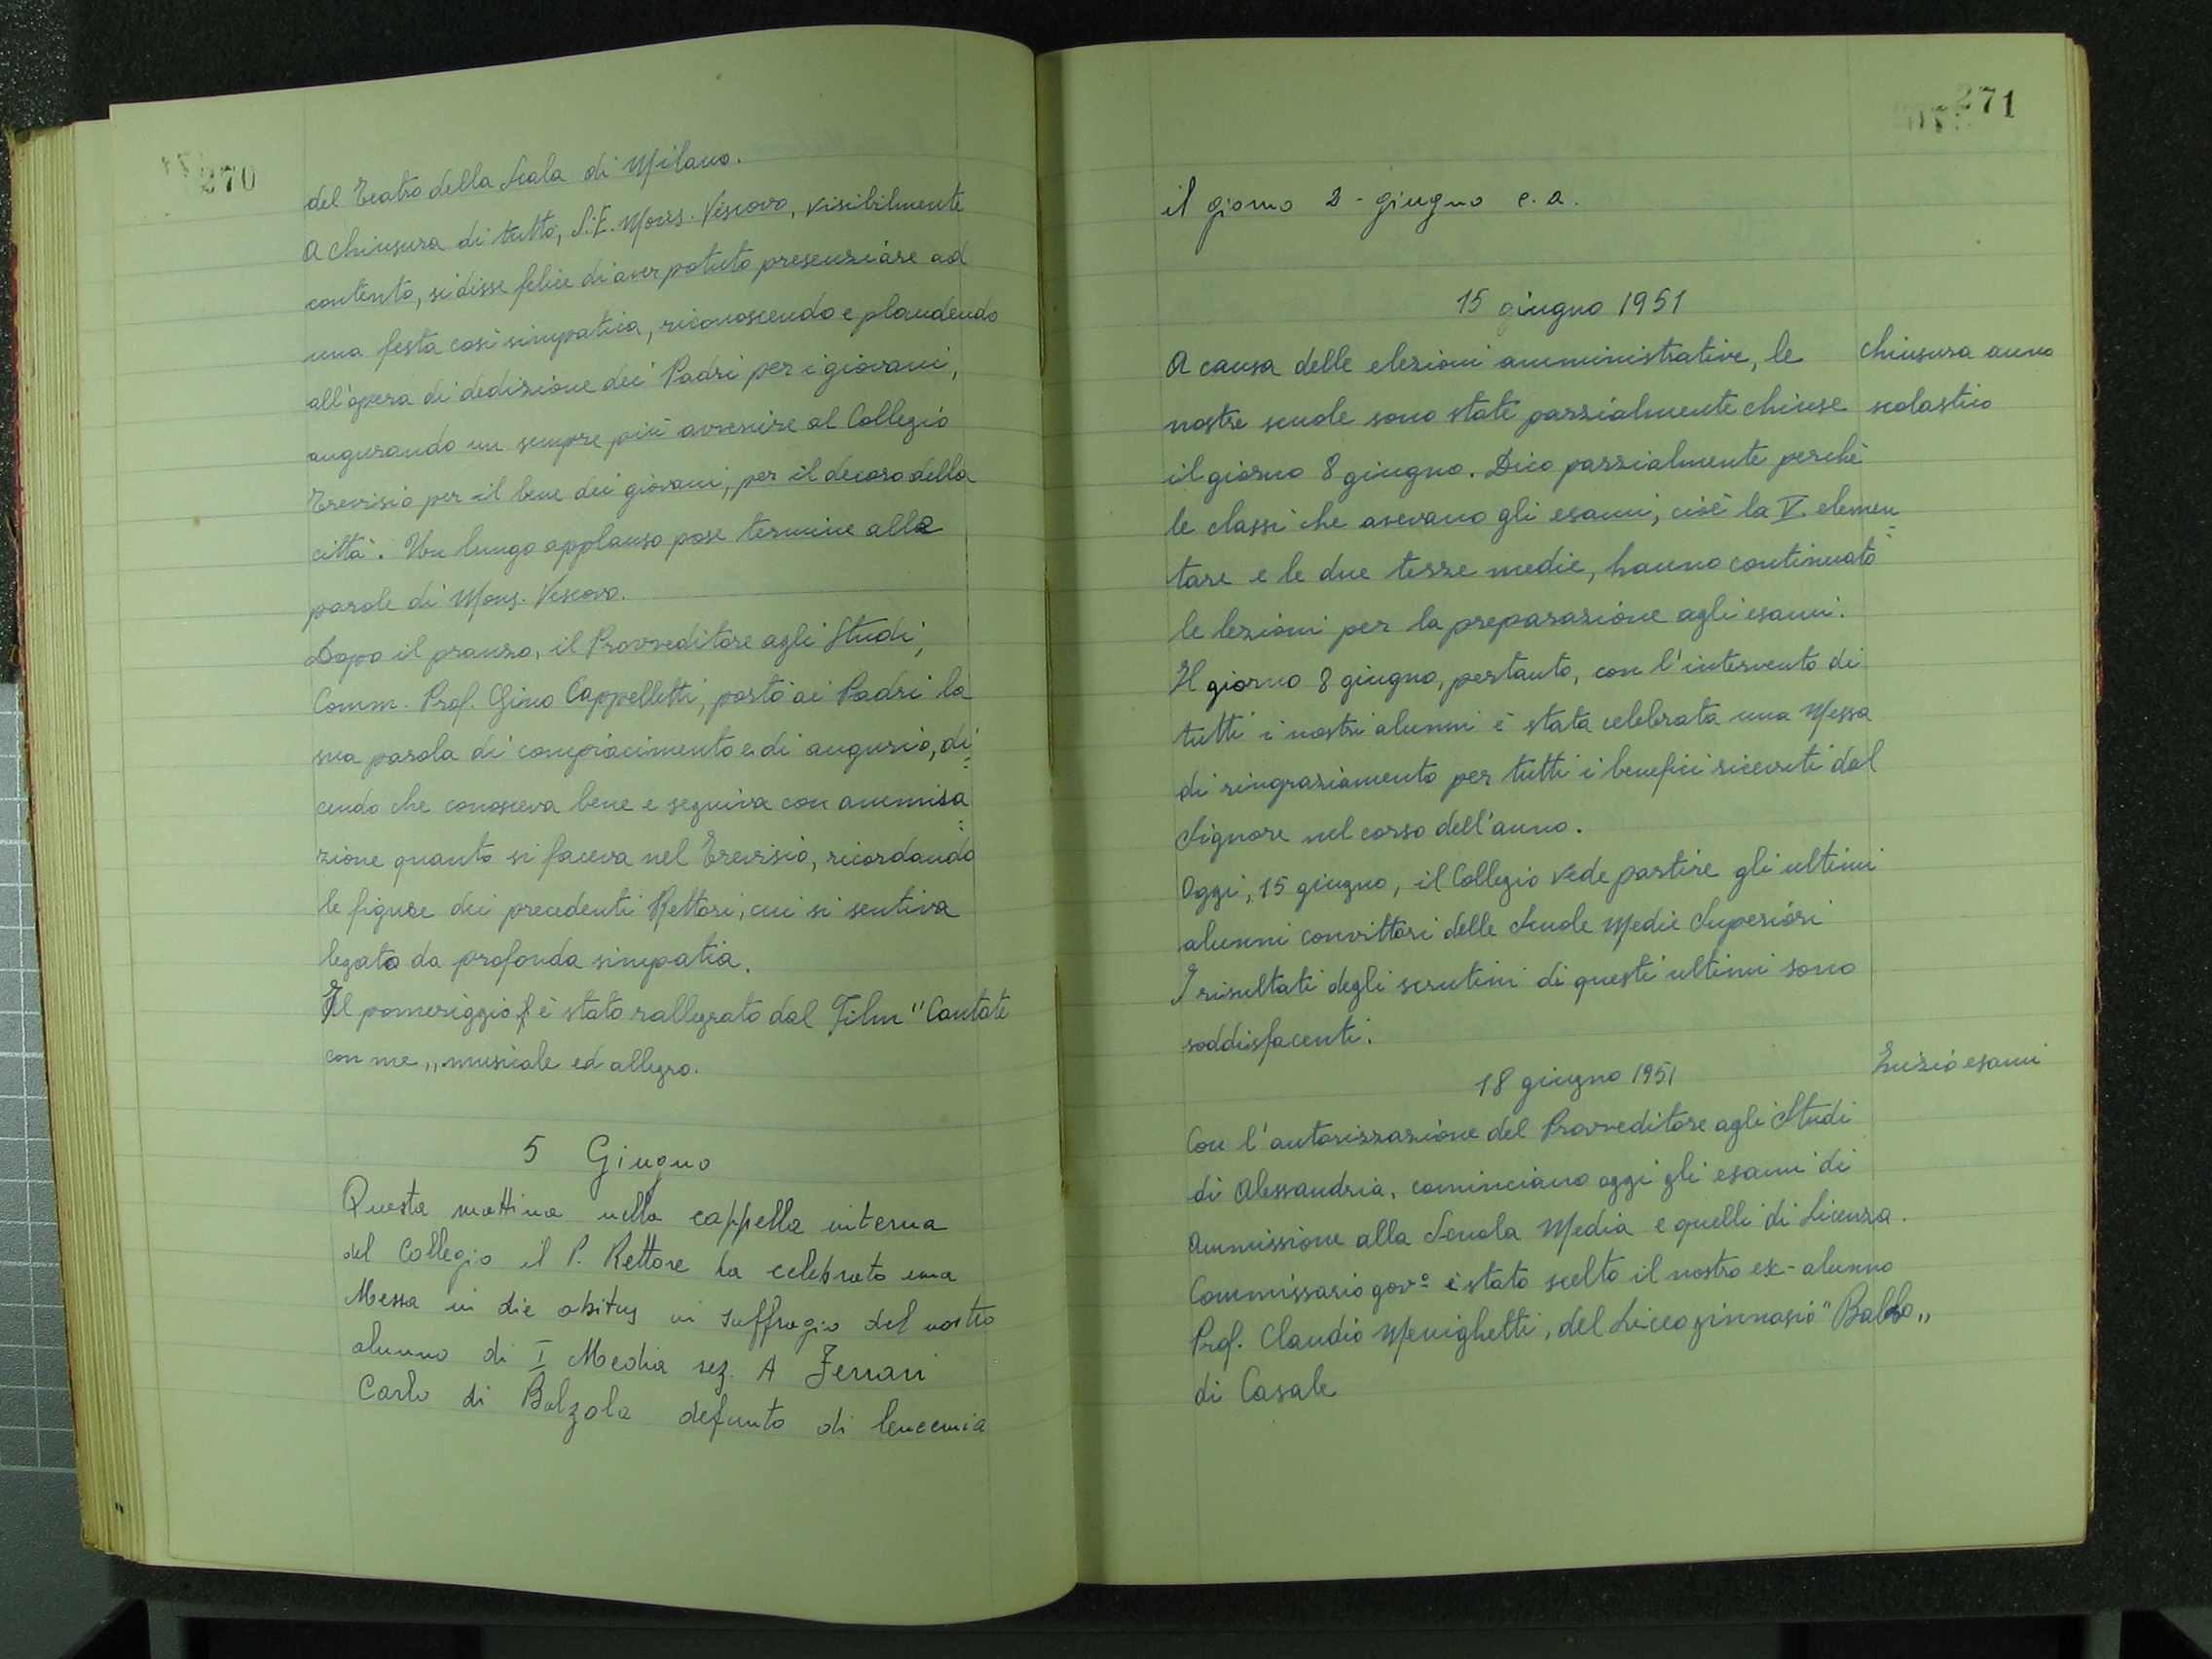 270
del Teatro della Scala di Milano.
A chiusura di tutto, S.E. Mons. Vescovo, visibilmente
contento, si disse felice di aver potuto presenziare ad
una festa così simpatica, riconoscendo e plaudendo
all'opera di dedizione dei Padri per i giovani,
augurando un sempre più avvenire al Collegio
Trevisio per il bene dei giovani, per il decoro della
città. Un lungo applauso pose termine alle
parole di Mons. Vescovo.
Dopo il pranzo, il Provveditore agli Studi,
Comm. Prof. Gino Cappelletti, portò ai Padri la
sua parola di compiacimento e di augurio, di=
cendo che conosceva bene e seguiva con ammira=
zione quanto si faceva nel Trevisio, ricordando
le figure dei precedenti Rettori, cui si sentiva
legato da profonda simpatia.
Il pomeriggio è stato rallegrato dal Film "Cantate
con me„ musicale ed allegro.
5 Giugno
Questa mattina nella cappella interna
del Collegio il P. Rettore ha celebrato una
Messa in die obitus in suffragio del nostro
alunno di I Media sez. A Ferrari
Carlo di Balzola defunto di leucemia
271
il giorno 2 - giugno c.a.
15 giugno 1951
A causa delle elezioni amministrative, le
chiusura anno
nostre scuole sono state parzialmente chiuse
scolastico
il giorno 8 giugno. Dico parzialmente perchè
le classi che avevano gli esami, cioè la V. elemen=
tare e le due terze medie, hanno continuato
le lezioni per la preparazione agli esami.
Il giorno 8 giugno, pertanto, con l'intervento di
tutti i nostri alunni è stata celebrata una Messa
di ringraziamento per tutti i benefici ricevuti dal
Signore nel corso dell'anno.
Oggi, 15 giugno, il Collegio vede partire gli ultimi
alunni convittori delle Scuole Medie Superiori
I risultati degli scrutini di questi ultimi sono
soddisfacenti.
18 giugno 1951
Inizio esami
Con l'autorizzazione del Provveditore agli Studi
di Alessandria, cominciano oggi gli esami di
Ammissione alla Scuola Media e quelli di Licenza.
Commissario govº è stato scelto il nostro ex-alunno
Prof. Claudio Menighetti, del Liceo ginnasio "Balbo„
di Casale